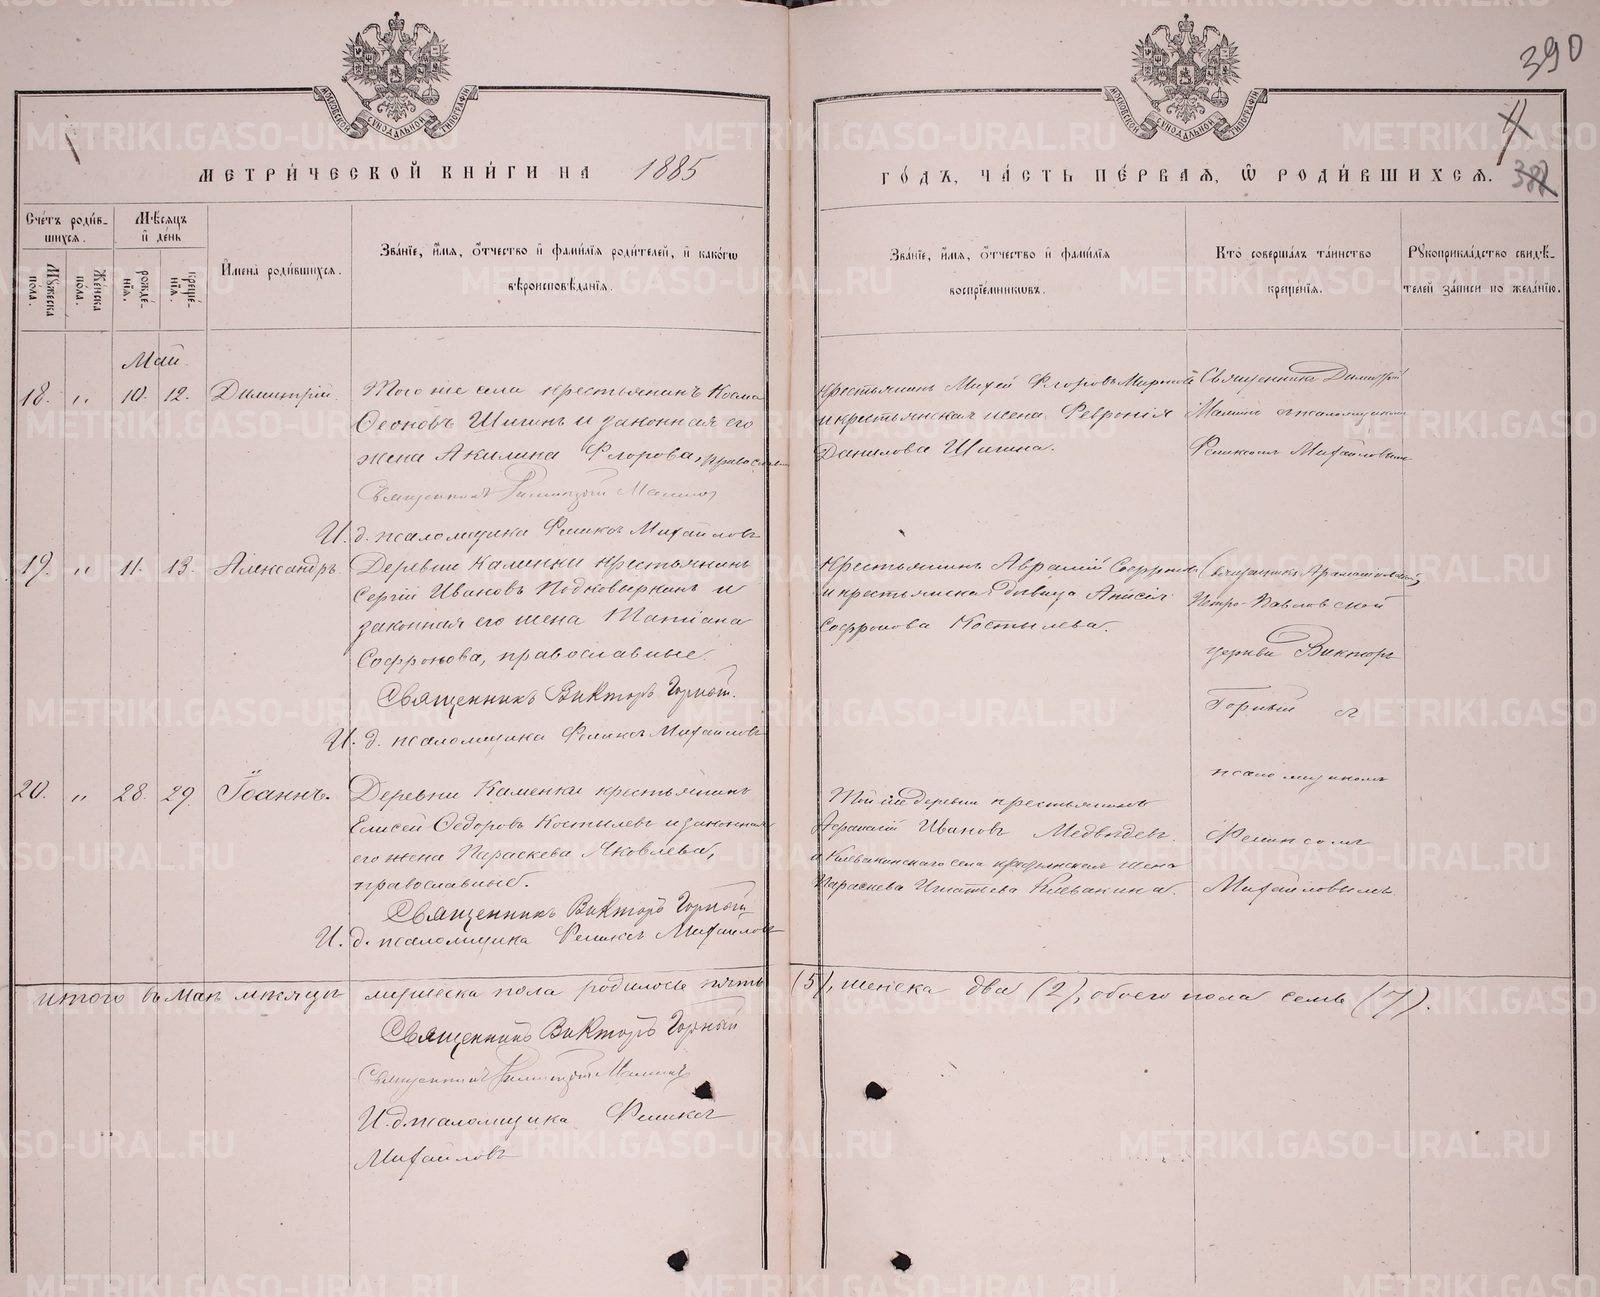 390
МОСКОВСКОЙ СѴНОДАЛЬНОЙ ТИПОГРАФІИ
МОСКОВСКОЙ СѴНОДАЛЬНОЙ ТИПОГРАФІИ
МЕТРИ́ЧЕСКОЙ КНИ́ГИ НА 1885
ГО́ДЪ, ЧА́СТЬ ПЕ́РВАЯ, Ѿ РОДИ́ВШИХСЯ.
Сче́тъ роди́в-
шихся.
Мꙋжеска пола.
Же́нска по́ла.
Мѣ́сяцъ
и де́нь
рожде́-
нїя.
креще́-
нїя.
И҆мена̀ роди́вшихся.
Зва́нїе, и҆́мя, ѻ҆́тчество и҆ фами́лїя роди́телей, и҆ како́гѡ
вѣроисповѣ́данїя.
Зва́нїе, и҆́мя, ѻ҆́тчество и҆ фами́лїя
воспрїе́мникѡвъ.
Кто̀ соверша́лъ та́инство
креще́нїя.
Рꙋкоприкла́дство свидѣ́-
телей за́писи по жела́нїю.
Май.
18. „ 10. 12. Димитрій.
Того же села крестьянинъ Косма
Ѳеоновъ Шишинъ и законная его
жена Акилина Флорова, православн
Священникъ Димитрій Малинъ
И. д. псаломщика Феликсъ Михайловъ
Крестьянинъ Михей Флоровъ
и крестьянская жена Февронія
Данилова Шишина.
Священникъ Димитрій
Малинъ съ псаломщикомъ
Феликсомъ Михайловымъ
19. „ 11. 13. Александръ.
Деревни Каменки крестьянинъ
Сергій Ивановъ Подковыркинъ и
законная его жена Татіана
Софронова, православные.
Священникъ Викторъ Горный.
И. д. псаломщика Феликсъ Михайловъ
Крестьянинъ Аврамій Софроновъ
и крестьянская дѣвица Анисія
Софронова Костылева.
Священникъ Арамашевской
Петро-Павловской
церкви Викторъ
Горный съ
псаломщикомъ
Феликсомъ
Михайловымъ
20. „ 28. 29. Іоаннъ.
Деревни Каменки крестьянинъ
Елисей Ѳедоровъ Костылевъ и законная
его жена Параскева Яковлева,
православные.
Священникъ Викторъ Горный
И. д. псаломщика Феликсъ Михайловъ
Той же деревни крестьянинъ
Аѳанасій Ивановъ Медвѣдевъ
и Клевакинскаго села крестьянская жена
Параскева Игнатьева Клевакина.
Итого въ маѣ мѣсяцѣ мужеска пола родилось пять (5), женска два (2), обоего пола семь (7).
Священникъ Викторъ Горный
Священникъ Димитрій Малинъ
И. д. псаломщика Феликсъ
Михайловъ
METRIKI.GASO-URAL.RU